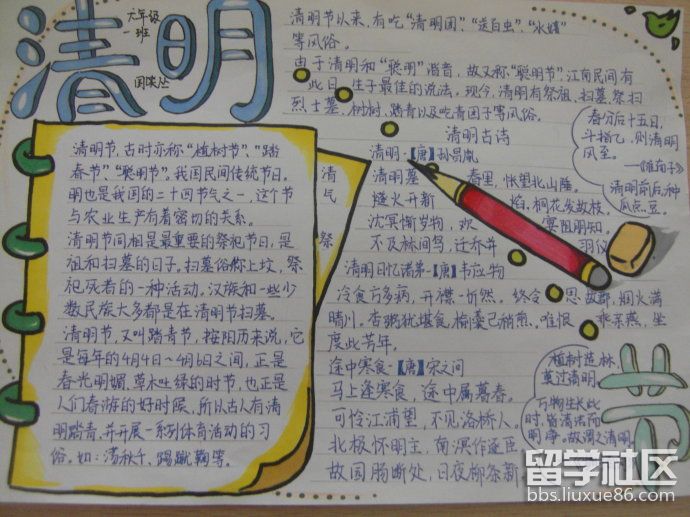 清明
六年级
一班
清明节,古时亦称“植树节”、“踏
春节”、“聪明节”,我国民间传统节日。
明也是我国的二十四节气之一,这个节
与农业生产有着密切的关系。
清明节同相是最重要的祭祀节日,是
祖和扫墓的日子。扫墓俗称上坟,祭
祀死者的一种活动。汉族和一些少
数民族大多都是在清明节扫墓。
清明节,又叫踏青节,按阳历来说,它
是每年的4月4日~4月6日之间,正是
春光明媚,草木吐绿的时节,也正是
人们春游的好时候,所以古人有清
明踏青,并开展一系列体育活动的习
俗。如:荡秋千、踢蹴鞠等。
清
民
祭
清明节以来,有吃“清明团”、“送白虫”、
等风俗。
由于清明和“聪明”谐音,故又称“聪明节”,江南民间有
此日 生子最佳的说法,现今,清明有祭祖、扫墓、祭扫
烈士墓、树树、踏青以及吃青团子等风俗。
清明古诗
清明·【唐】孙昌胤
清明暮 春里,怅望北山陲。
燧火开新 焰,桐花发故枝。
沈冥惭岁物,欢 宴阻朋知。
不及林间鸟,迁乔并 羽仪
清明日忆诸弟·【唐】韦应物
冷食方多病,开襟一忻然。终令 思故郡,烟火满
晴川。杏粥犹堪食,榆羹已稍煎。唯恨 乖亲燕,坐
度此芳年。
途中寒食·【唐】宋之问
马上逢寒食,途中属暮春。
可怜江浦望,不见洛桥人。
北极怀明主,南溟作逐臣
故园肠断处,日夜柳条新
春分后十五日,
斗指乙,则清明
风至。
——《淮南子》
清明前后,种
瓜点豆。
植树造林,
莫过清明。
万物生长此
时,皆清洁而
明净。故谓之清明。
节
留学社区
bbs.liuxue86.com